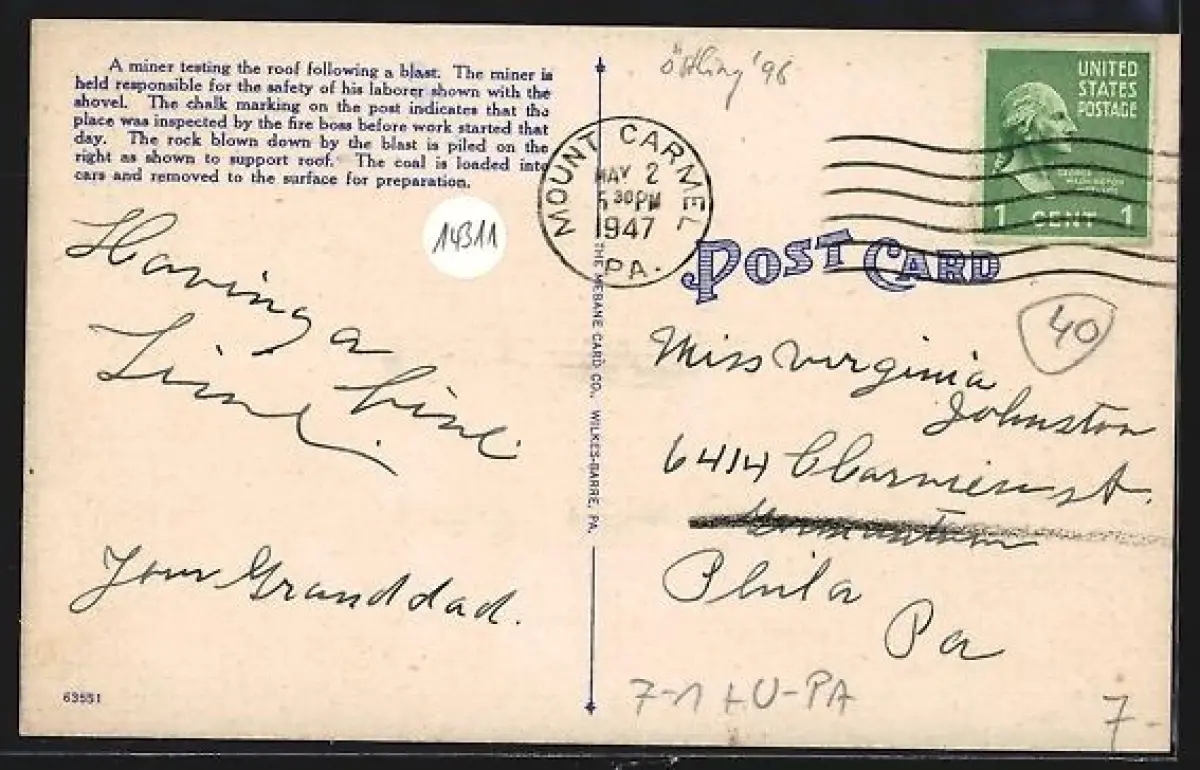 A miner testing the roof following a blast. The miner is
held responsible for the safety of his laborer shown with the
shovel. The chalk marking on the post indicates that the
place was inspected by the fire boss before work started that
day. The rock blown down by the blast is piled on the
right as shown to support roof. The coal is loaded into
cars and removed to the surface for preparation.
'98
UNITED
STATES
POSTAGE
GEORGE
WASHINGTON
1 CENT 1
MOUNT CARMEL
MAY 2
5 30 PM
1947
PA.
14311
POST CARD
THE MEBANE CARD CO., WILKES-BARRE, PA.
Having a
fine
Time.
Your Granddad.
40
Miss Virginia
Johnston
6414 St.
Phila
Pa
63551
7-1 LU-PA
7-